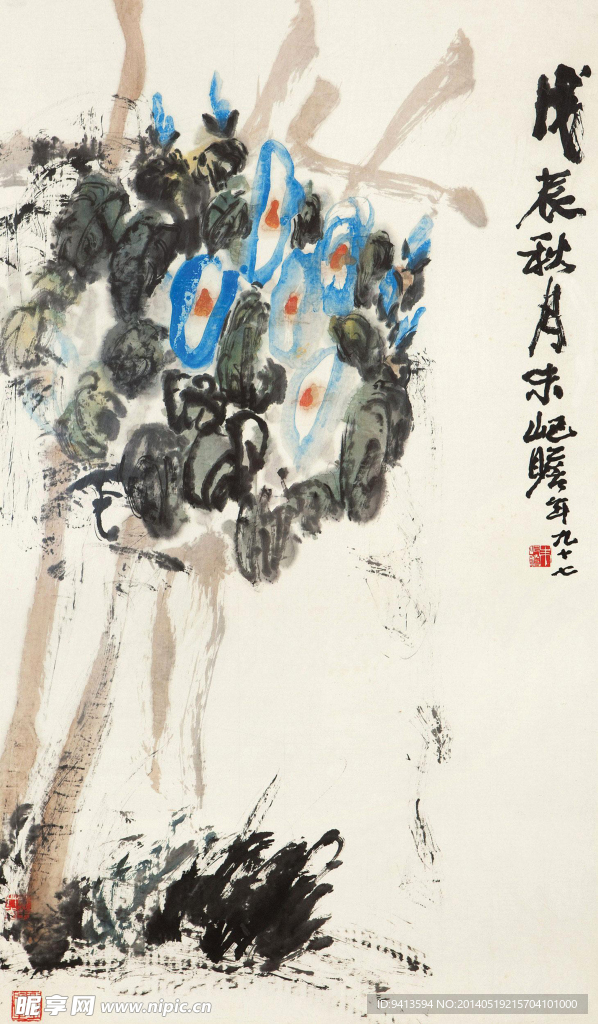 戊辰秋月朱屺瞻年九十七
昵享网 www.nipic.cn
ID:9413594 NO:20140519215704101000